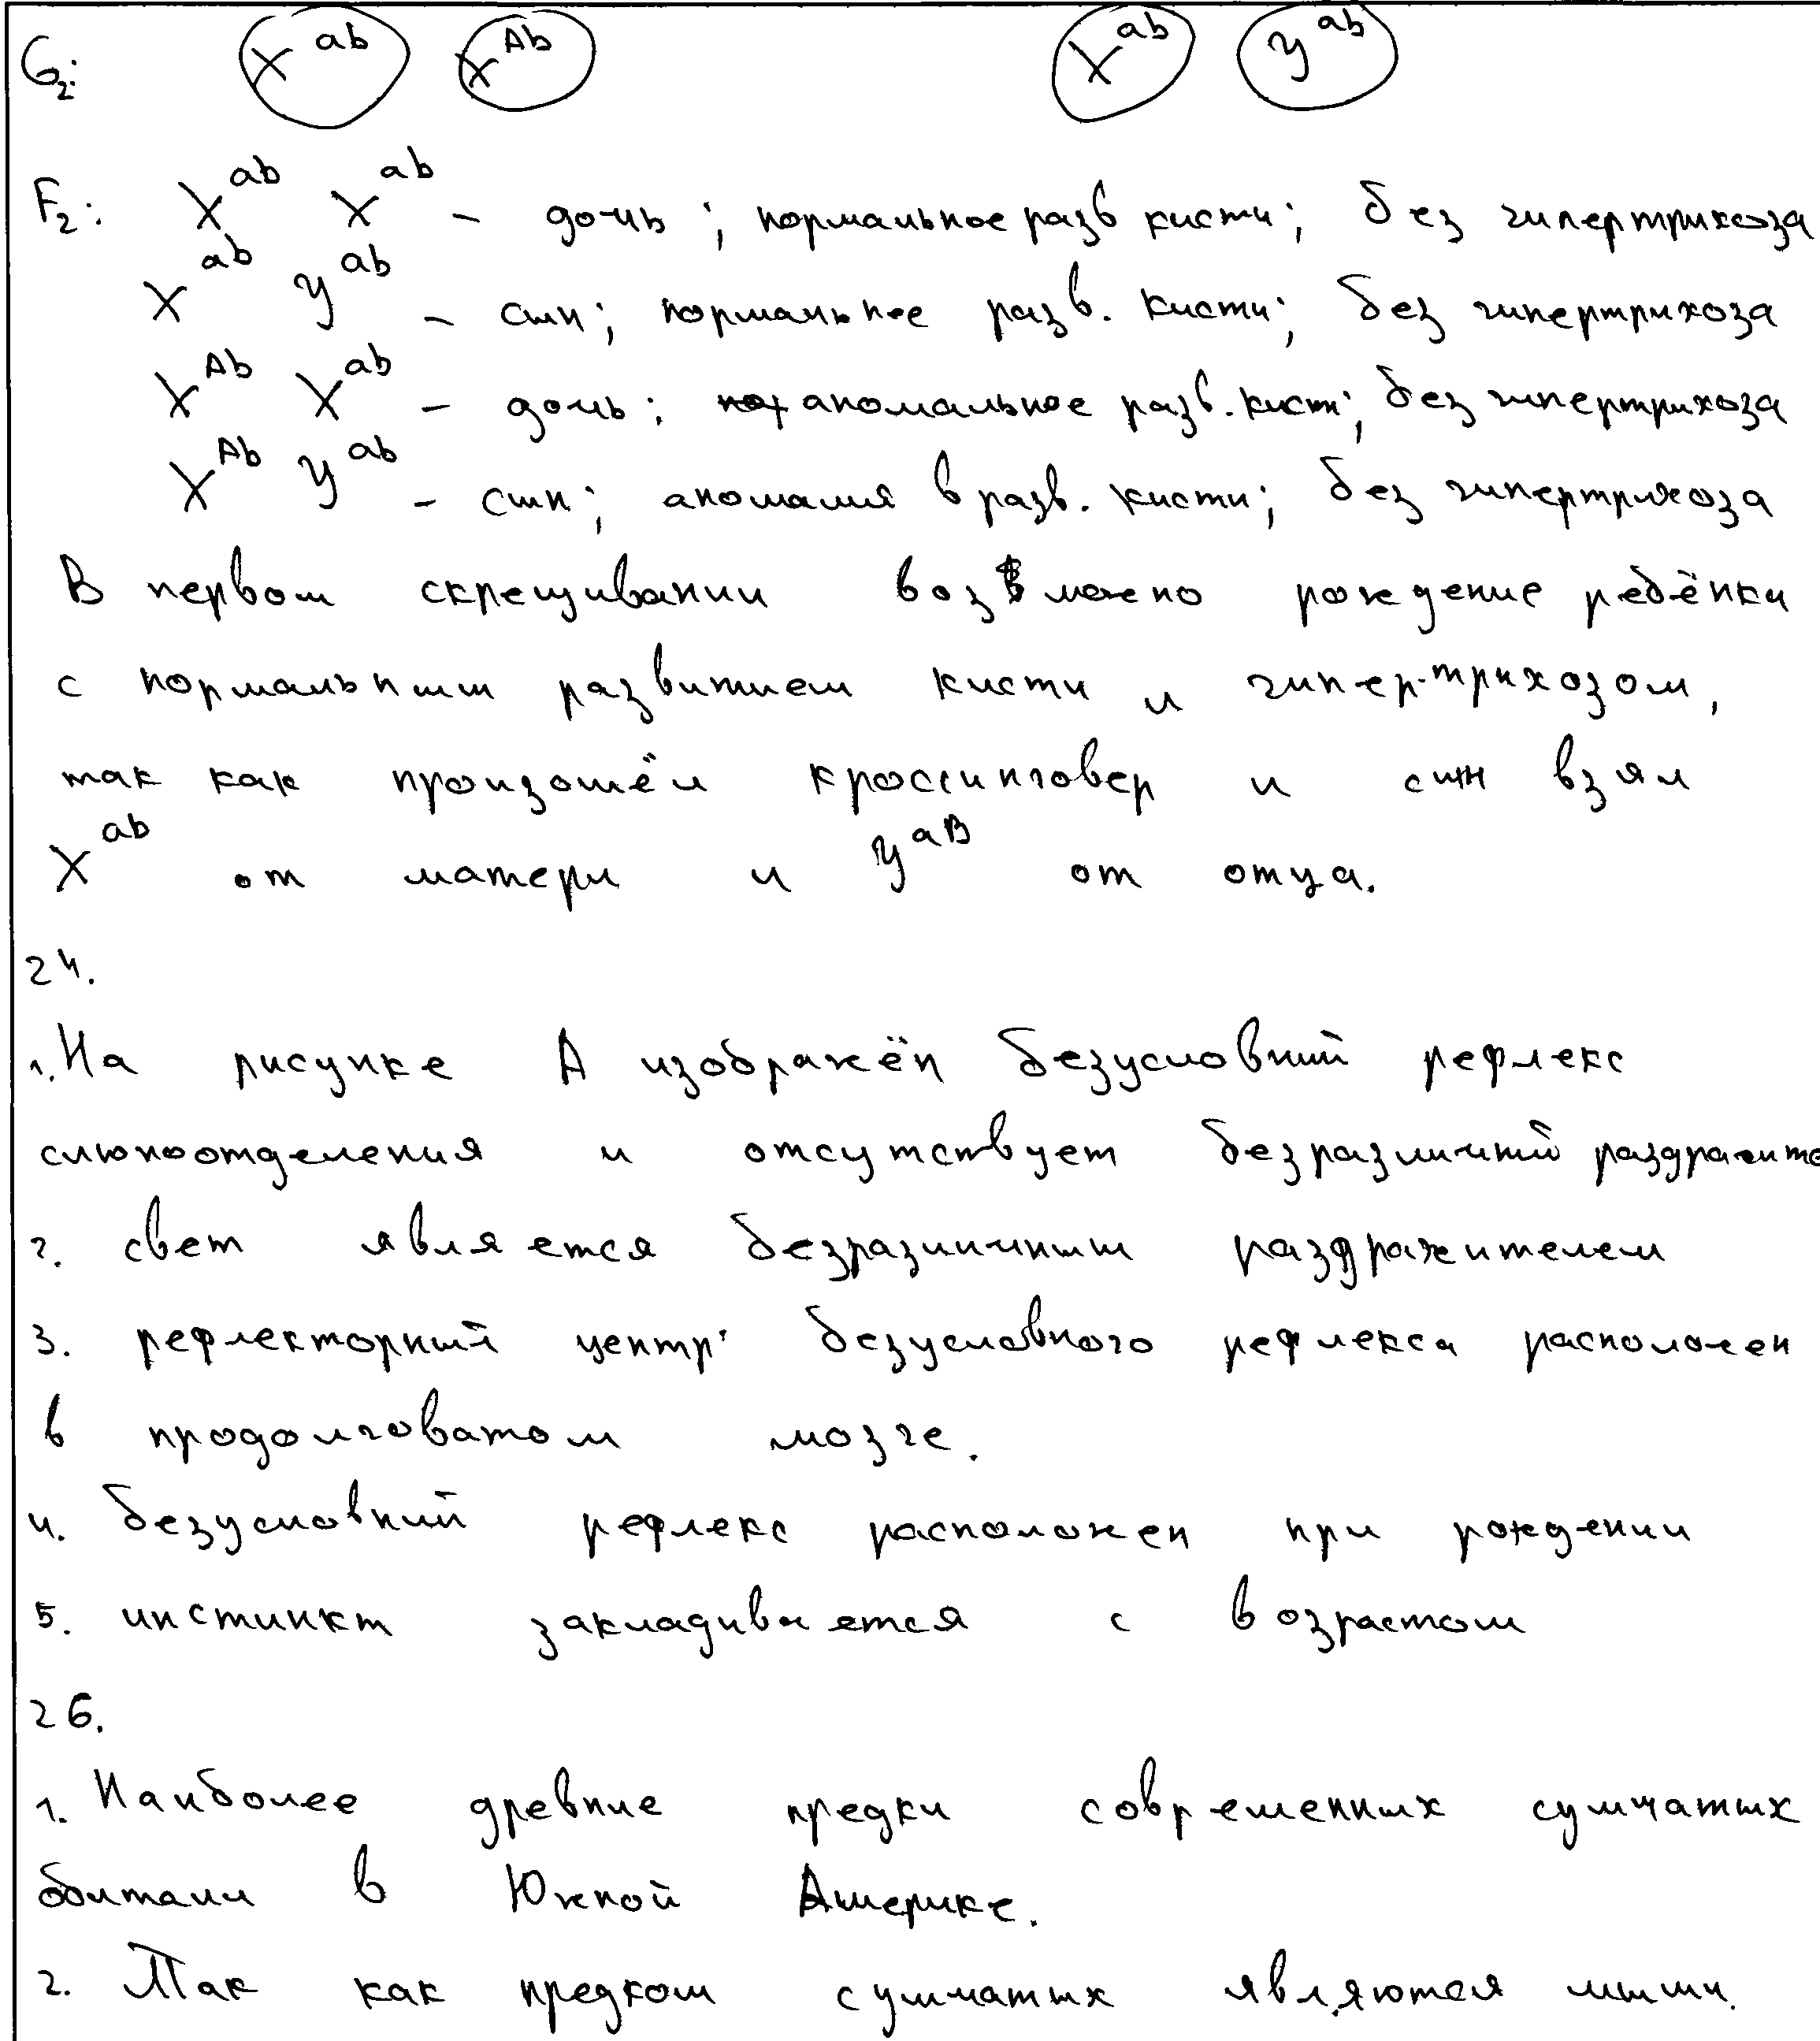 G₂: X^ab X^Ab X^ab У^ab
F₂: X^ab X^ab – дочь; нормальное разв кисти; без гипертрихоза
X^ab У^ab – сын; нормальное разв. кисти; без гипертрихоза
X^Ab X^ab – дочь; аномальное разв. кисти; без гипертрихоза
X^Ab У^ab – сын; аномалия в разв. кисти; без гипертрихоза
В первом скрещивании возможно рождение ребёнка
с нормальным развитием кисти и гипертрихозом,
так как произошёл кроссинговер и сын взял
X^ab от матери и У^aB от отца.
24.
1. На рисунке А изображён безусловный рефлекс
слюноотделения и отсутствует безразличный раздражите
2. свет является безразличным раздражителем
3. рефлекторный центр безусловного рефлекса расположен
в продолговатом мозге.
4. безусловный рефлекс расположен при рождении
5. инстинкт закладывается с возрастом
26.
1. Наиболее древние предки современных сумчатых
обитали в Южной Америке.
2. Так как предком сумчатых являются мыши.